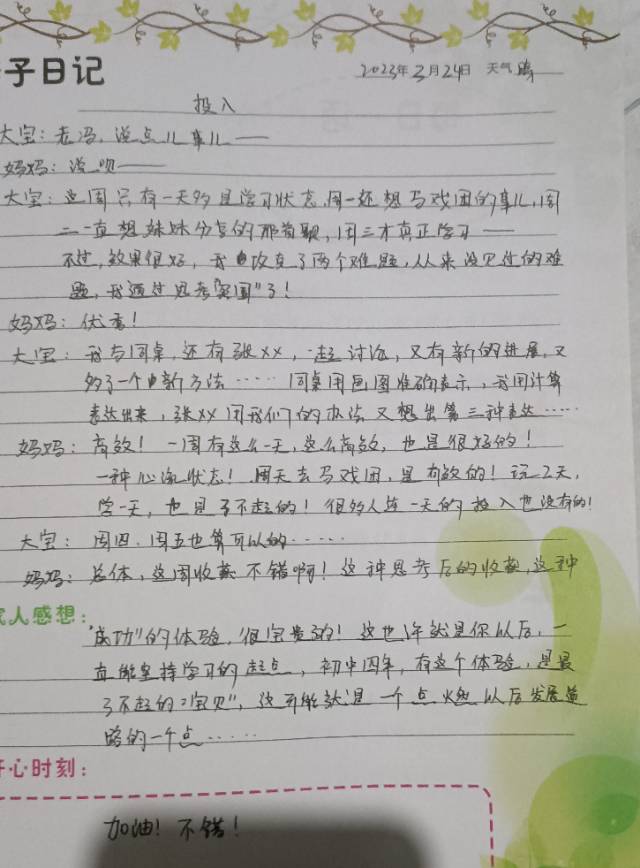 子日记
2023年3月24日 天气 晴
投入
大宝：老冯，说点儿事儿——
妈妈：说呗——
大宝：这周只有一天多是学习状态，周一还想马戏团的事儿，周
二一直想妹妹分享的那首歌，周三才真正学习——
不过，效果很好，我攻克了两个难题，从来没见过的难
题，我通过思考"突围"了！
妈妈：优秀！
大宝：我与同桌，还有张xx，一起讨论，又有新的进展，又
多了一个新方法……同桌用画图准确表示，我用计算
表达出来，张xx用我们的办法又想出第三种表达……
妈妈：高效！一周有这么一天，这么高效，也是很好的！
一种心流状态！周天去马戏团，是有效的！玩2天，
学一天，也是了不起的！很多人连一天的投入也没有的！
大宝：周四、周五也算可以的……
妈妈：总体，这周收获不错啊！这种思考后的收获，这种
家人感想：
"成功"的体验，很宝贵的！这也许就是你以后，一
直能坚持学习的起点，初中四年，有这个体验，是最
了不起的"宝贝"，这可能就是一个点燃以后发展道
路的一个点……
开心时刻：
加油！不错！